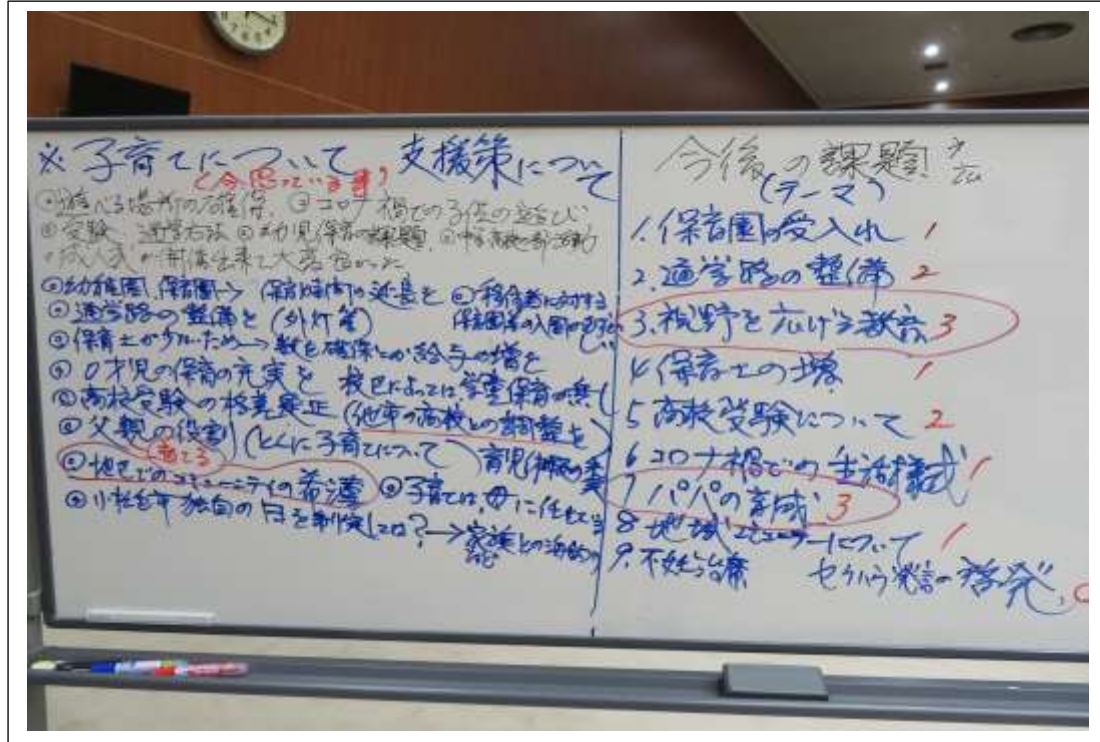 ※子育てについて 支援策について
(今困っている事)
・遊べる場所の確保、・コロナ禍での子供の遊び
・受験、通学方法・幼児保育の課題、・中学高校の部活動
・成人式が開催出来て大変良かった
・幼稚園、保育園→保育時間の延長を
・移住者に対する保育園等の入園が
・通学路の整備を(外灯等)
・保育士が少ないため→数を確保とか給与の増を
・0才児の保育の充実を 校区によっては、学童保育が無い
・高校受験の格差是正(他市の高校との調整を)
・父親の役割(とくに子育てについて) 育児休暇の
育てる
・地区でのコミュニティの希薄 ・子育ては、母に任せ
・小松島市独自の日を制定しては?→家族との
今後の課題
(テーマ)
1.保育園の受入れ 1
2.通学路の整備 2
3.視野を広げる教育 3
4.保育士の増 1
5 高校受験について 2
6 コロナ禍での生活様式 1
7 パパの育成 3
8 地域コミュニティーについて 1
9.不妊治療 セクハラ発言の啓発、